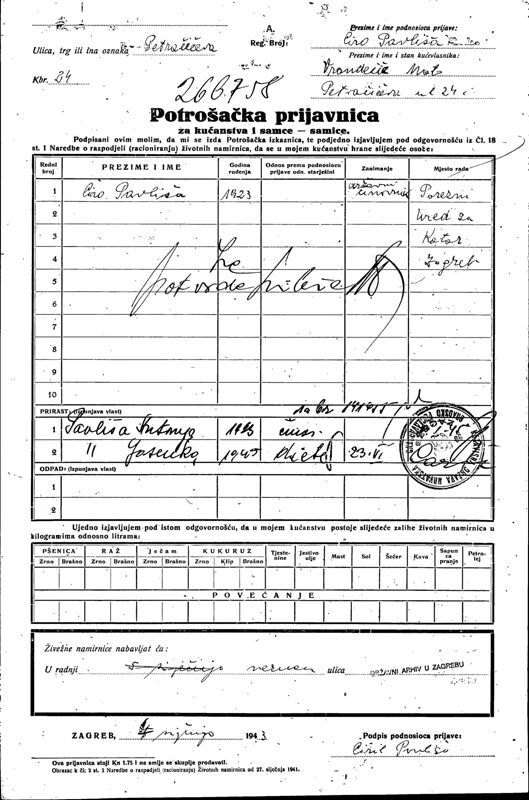 A.
Prezime i ime podnosioca prijave:
Ulica, trg ili ina oznaka Petračićeva
Reg. Broj:
Ćiro Pavliša
Prezime i ime i stan kućevlasnika:
Kbr. 24
Mato
266758
Petračićeva ul 24
Potrošačka prijavnica
za kućanstva i samce – samice.
Potpisani ovim molim, da mi se izda Potrošačka izkaznica, te podjedno izjavljujem pod odgovornošću iz Čl. 18
st. 1 Naredbe o razpodjeli (racioniranju) životnih namirnica, da se u mojem kućanstvu hrane slijedeće osobe:
Redni broj PREZIME I IME Godina rođenja Odnos prema podnosiocu prijave odn. starješini Zanimanje Mjesto rada
1 Ćiro Pavliša 1923 državni činovnik Porezni
2 ured za
3 Kotar
4 Zagreb
5
6
7
8
9
10
PRIRAST: (Ispunjava vlast)
1 Pavliša 1923
2 " Jasenka 1945 dijete 23.VI
ODPAD: (Ispunjava vlast)
1
2
Ujedno izjavljujem pod istom odgovornošću, da u mojem kućanstvu postoje slijedeće zalihe životnih namirnica u
kilogramima odnosno litrama:
PŠENICA RAŽ Ječam KUKURUZ Tjestenine Jestivo ulje Mast Sol Šećer Kava Sapun za pranje Petrolej
Zrno Brašno Zrno Brašno Zrno Brašno Zrno Klip Brašno
POVEĆANJE
Živežne namirnice nabavljat ću:
U radnji ulica
DRŽAVNI ARHIV U ZAGREBU
ZAGREB, 4 siječnja 1943
Podpis podnosioca prijave:
Ćiril Pavliša
Ova prijavnica stoji Kn 1.75 i ne smije se skuplje prodavati.
Obrazac k čl. 2 st. 3 Naredbe o razpodjeli (racioniranju) Životnih namirnica od 27. siječnja 1941.